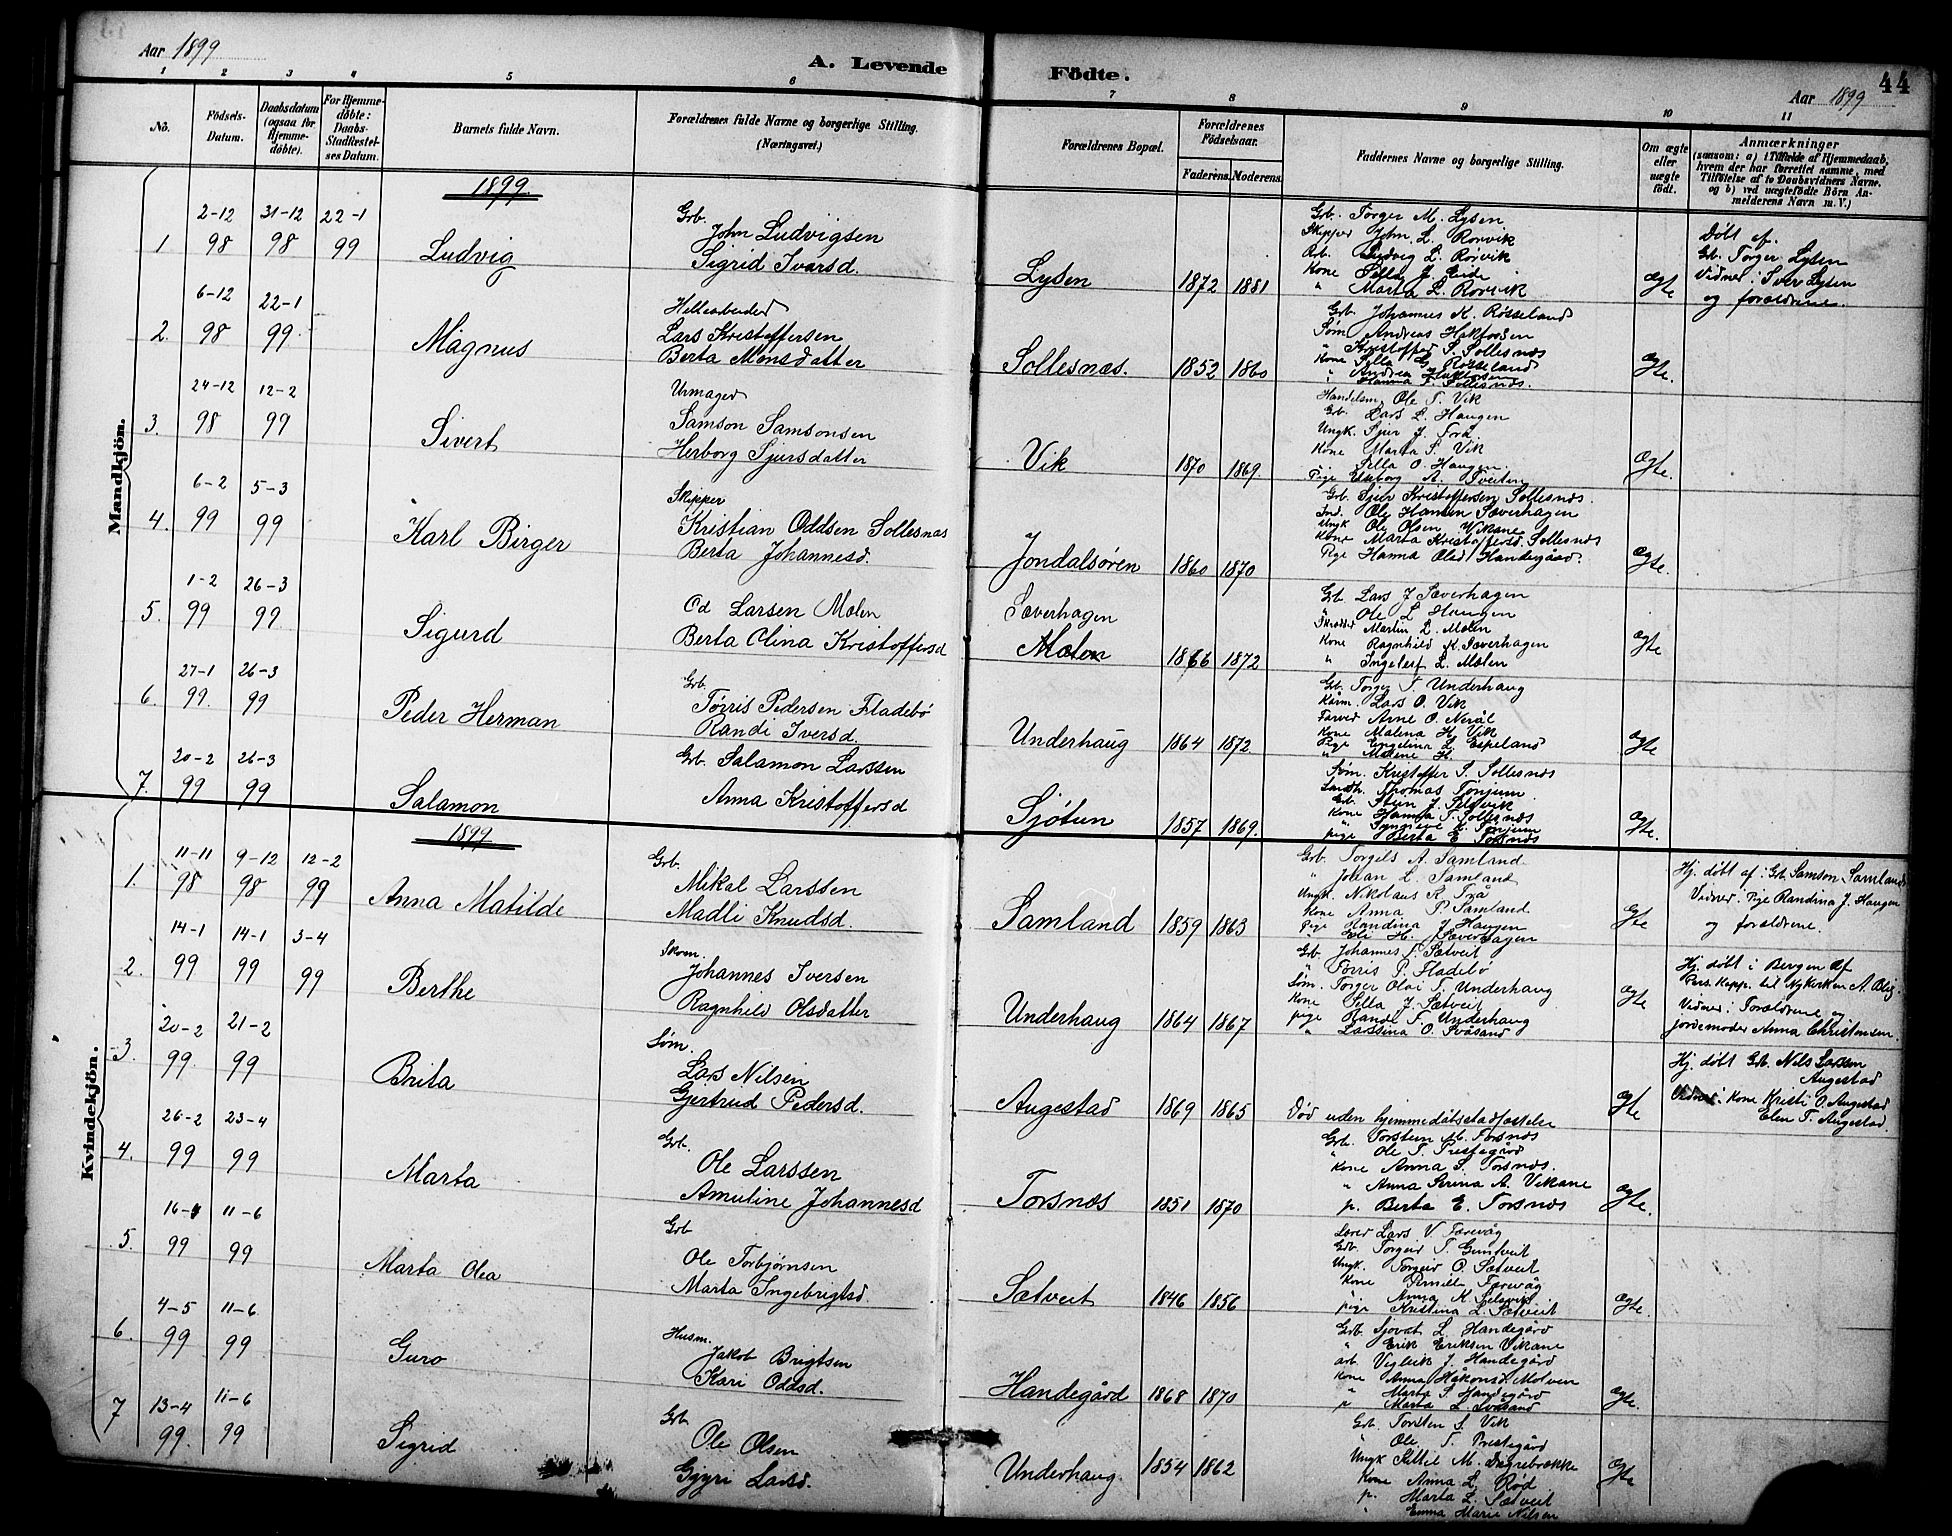 Aar 1899
A. Levende Födte.
44
Aar 1899
1 2 3 4 5 6 7 8 9 10 11
No.
Födsels-Datum.
Daabsdatum (ogsaa for Hjemme-döbte).
For Hjemme-döbte: Daabs-Stadfæstel-ses Datum.
Barnets fulde Navn.
Forældrenes fulde Navne og borgerlige Stilling. (Næringsvei.)
Forældrenes Bopæl.
Forældrenes Födselsaar.
Faderens. Moderens.
Faddernes Navne og borgerlige Stilling.
Om ægte eller uægte födt.
Anmærkninger
(saasom: a) i Tilfælde af Hjemmedaab,
hvem der har forrettet samme, med
Tilföielse af to Daabsvidners Navne,
og b) ved uægtefödte Börn An-
melderens Navn m. V.)
Mandkjön.
1899
1. 2-12 98 31-12 98 22-1 99
Ludvig
Grb. John Ludvigsen
Sigrid Ivarsd.
Lysen 1872 1881
Grb. Torger M. Lysen
Skipper John L. Rorvik
Arb. Ludvig L. Rorvik
Kone Silla J. Eide
" Marta L. Rorvik
Ægte
Døbt af
Grb. Torger Lysen
Vidner: Iver Lysen
og forældrene.
2. 6-12 98 22-1 99
Magnus
Lars Kristoffersen
Berta Monsdatter
Sollesnæs. 1852 1860
Grb. Johannes K. Røsseland
Søm. Andreas
" Kristoffer S. Sollesnæs
Kone Silla G. Røsseland
" Hanna T. Sollesnæs.
Ægte.
3. 24-12 98 12-2 99
Sivert
Urmager
Samson Samsonsen
Herborg Sjursdatter
Vik 1870 1869
Handelsm. Ole T. Vik
Grb. Lars L. Haugen
Ungk. Sjur J. Trå
Kone Marta S. Vik
" Silla O. Haugen
Pige A. Tveiten
Ægte.
4. 6-2 99 5-3 99
Karl Birger
Skipper
Kristian Oddsen Sollesnæs
Berta Johannesd.
Jondalsøren 1860 1870
Grb. Sjur Kristoffersen Sollesnæs.
Ind. Ole Hansen Sæverhagen
Ungk Ole Olsen Vikane
Kone Marta Kristoffersd. Sollesnæs
Pige Hanna Olsd. Handegård.
Ægte.
5. 1-2 99 26-3 99
Sigurd
Od Larsen Mælen
Berta Olina Kristoffersd
Sæverhagen
Mælen 1866 1872
Grb. Lars J Sæverhagen
" Ole L Haugen
Skrædder Martin L. Mælen
Kone Ragnhild K. Sæverhagen
" Ingelef L. Mælen
Ægte
6. 27-1 99. 26-3 99
Peder Herman
Grb.
Tørris Pedersen Fladebø
Randi Iversd.
Underhaug 1864 1872
Grb. Torger T. Underhaug
Lars O. Vik
Farver Arne O. Nerål
Kone Malena H. Vik
Pige Engelina L. Espeland
" Malene H.
Ægte
7. 20-2 99 26-3 99
Salamon
Grb. Salamon Larssen
Anna Kristoffersd
Sjøtun 1857 1869.
Søm. Kristoffer S. Sollesnæs
Landh. Thomas Tønjum
Grb. Sten J. Selsvik
Kone Hanna T. Sollesnæs
" Synneve K. Tønjum
pige Berta E. Torsnæs
Ægte.
Kvindekjön.
1899
1. 11-11 98 9-12 98 12-2 99
Anna Matilde
Grb.
Mikal Larssen
Madli Knudsd.
Samland 1859 1863
Grb. Torgels A. Samland
" Johan L. Samland
Ungk. Nikolaus R. Trå
Kone Anna P. Samland
Pige Randina J. Haugen
" Eli H. Sæverhagen
Ægte
Hj. døbt af: Grb. Samson Samland
Vidner: Pige Randina J. Haugen
og forældrene.
2. 14-1 99 14-1 99 3-4 99
Berthe
Skom.
Johannes Iversen
Ragnhild Olsdatter
Underhaug 1864 1867
Grb. Johannes T. Sætveit
" Tørris P. Fladebø
Søm. Torger Olai T. Underhaug
Kone Silla J. Sætveit
pige Randi T. Underhaug
" Larssina O. Svåsand
Ægte
Hj. døbt i Bergen af
Pers. Kapp. til Nykirken A. Blix.
Vidner: Forældrene og
jordemoder Anna Christensen.
3. 20-2 99. 21-2 99
Brita
Søm.
Lars Nilsen
Gjertrud Pedersd.
Augestad 1869 1865
Død uden hjemmedåbsstadfæstelse
Ægte
Hj. døbt Grb. Nils Larssen
Augestad
Vidner: Kone Kristi O. Augestad
Elen T. Augestad.
4. 26-2 99 23-4 99
Marta
Grb.
Ole Larssen
Amutine Johannesd
Torsnæs 1851 1870
Grb. Torstein M. Torsnæs
" Ole T. Prestegård
Kone Anna S. Torsnæs.
" Anna Serina A. Vikane
p. Berta E. Torsnæs
Ægte.
5. 16-4 99 11-6 99
Marta Olea
Grb
Ole Torbjørnsen
Marta Ingebrigtsd.
Sætveit 1846 1856
Lærer Lars V. Færevåg
Grb. Torgeir T. Guntveit
Ungk. Torgeir O. Sætveit
Kone Pernille Færevåg
" Anna K. Selsvik
pige Kristina L. Sætveit
Ægte.
6. 4-5 99 11-6 99
Guro
Husm.
Jakob Brigtsen
Kari Oddsd.
Handegård 1868 1870
Grb. Sjovat L. Handegård
" Erik Eriksen Vikane
arb. Vigleik J. Handegård
Kone Anna Håkonsd. Molven
" Marta S. Handegård
p Marta L. Svåsand
Ægte.
7 13-4 99. 11-6 99
Sigrid
Grb
Ole Olsen
Gjyri Larsd.
Underhaug. 1854 1862
Grb Torsten S. Vik
" Ole T. Prestegård
Ungk Kittil M. Dægrebrække
Kone Anna L. Rød
p. Marta L. Sætveit
" Emma Marie Nilsen
Ægte